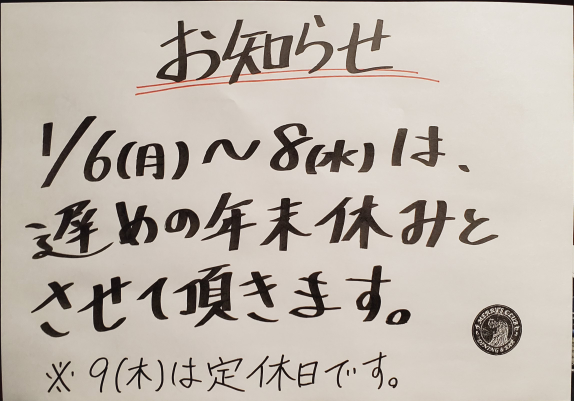 お知らせ
1/6(月)〜8(水)は、
遅めの年末休みと
させて頂きます。
※9(木)は定休日です。